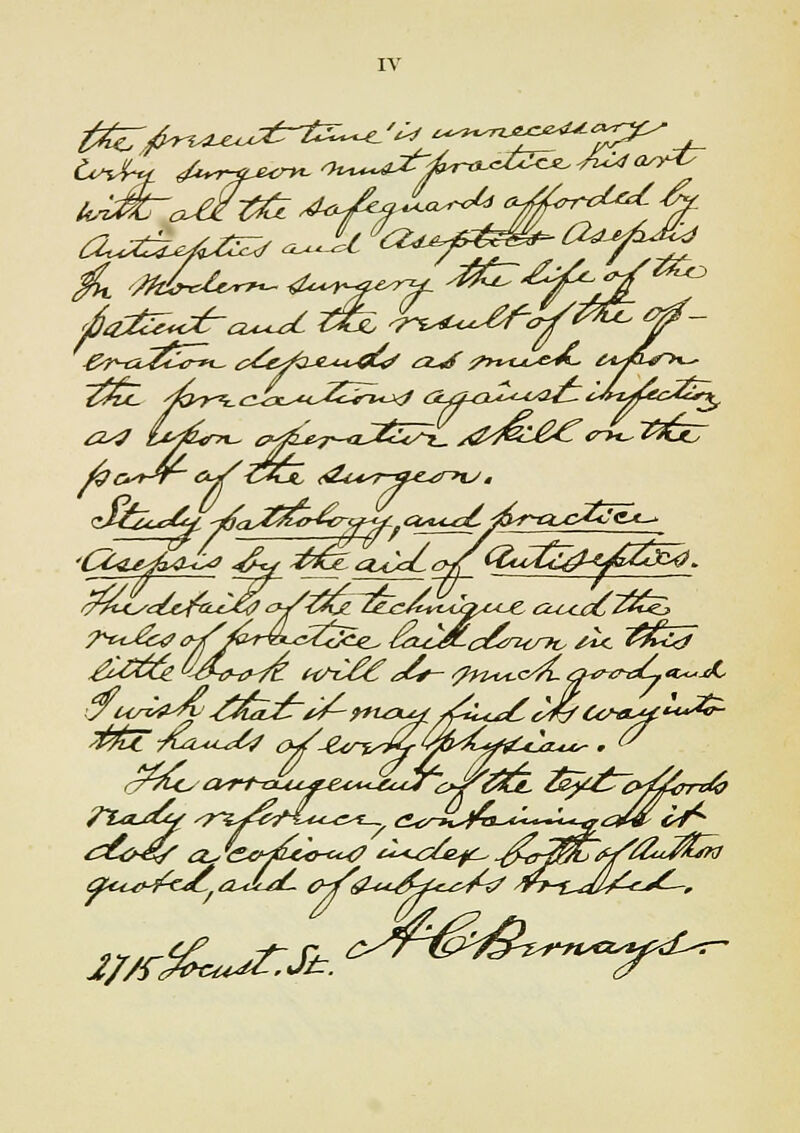 IV
the present time is unnecessary
Every surgeon must practice his art
with all the safeguards afforded by
Antiseptics and Aseptics Asepsis
In Modern surgery the life of the
patient and the result of the op-
eration depends as much upon
the precautions against infection,
as upon operative skill on the
part of the surgeon.
Study pathology, and practice
Asepsis by the aid of Antiseptics.
The details of the technique and the
rules of practice laid down in this
little book will do much good, and
I wish that it may find its way into
the hands of every physian.
The arrangement of the text affords
ready reference, containing as it
does a copious index both of Authors
quoted, and of subjects treated.
A. C. Bernays.
2715 Locust. St.